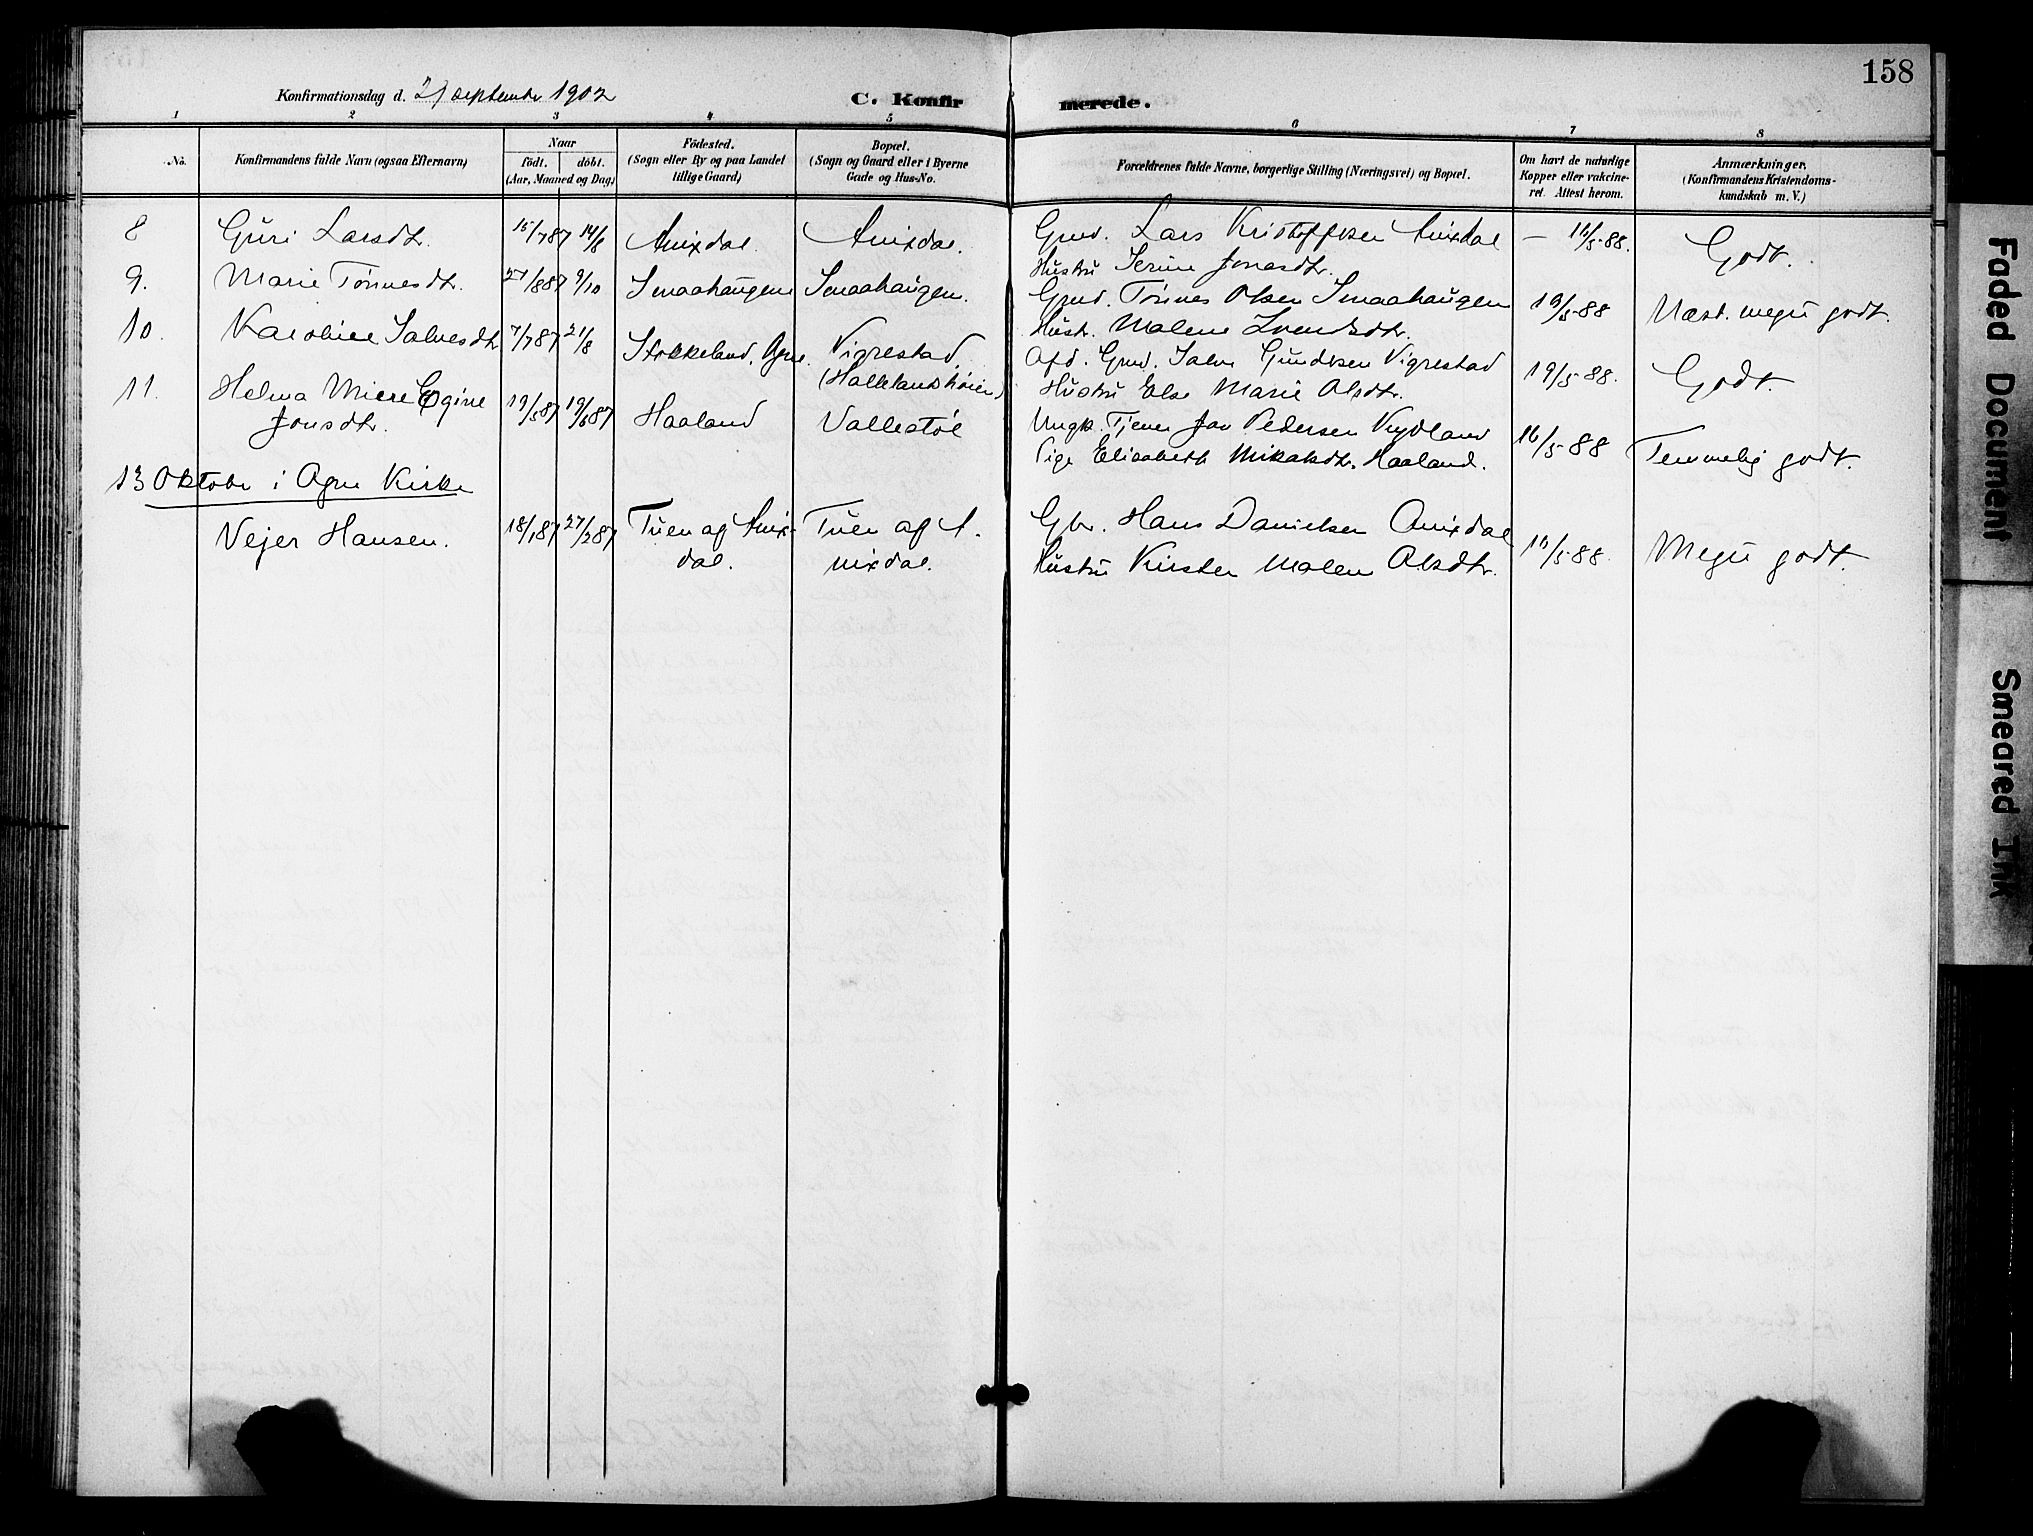 158
Konfirmationsdag d. 21 september 1902
C. Konfirmerede.
1 2 3 4 5 6 7 8
No.
Konfirmandens fulde Navn (ogsaa Efternavn)
Naar
født. døbt.
(Aar, Maaned og Dag)
Födested.
(Sogn eller By og paa Landet
tillige Gaard)
Bopæl.
(Sogn og Gaard eller i Byerne
Gade og Hus-No.
Forældrenes fulde Navne, borgerlige Stilling (Næringsvei) og Bopæl.
Om havt de naturlige
Kopper eller vakcine-
ret. Attest herom.
Anmærkninger.
(Konfirmandens Kristendoms-
kundskab m. V.)
8 Guri Larsdt. 15/7 87 14/8 Anixdal. Anixdal. Gmd. Lars Kristoffersen Anixdal — 16/5-88. Godt.
Hustru Serine Jonasdtr.
9. Marie Tønnesdtr. 27/8 87 9/10 Smaahaugen Smaahaugen. Gmd. Tønnes Olsen Smaahaugen 19/5-88 Mæst. meget godt.
Hustr. Malene Svendsdtr.
10. Karoline Salvesdtr 7/7 87 21/8 Stokkeland, Ogne. Vigrestad
(Hallelandshøien) Afd. Gmd. Salve Gundersen Vigrestad 19/5-88. Godt.
Hustru Else Marie Olsdtr.
11. Helma Micre Egine
Jonsdtr. 19/5 87 19/6 87 Haaland Vallestøl Ungk. Tjener Jon Pedersen 16/5-88 Temmelig godt.
Pige Elisabeth Mikalsdtr. Haaland.
13 Oktober i Ogne Kirke
Vejer Hansen. 18/1 87 27/2 87 Tuen af Anix-
dal. Tuen af A.
nixdal. Gbr. Hans Danielsen Anixdal 16/5 88. Meget godt.
Hustru Kirsten Malene Olsdtr.
Faded Document
Smeared Ink